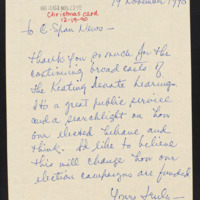 19 November 1990
Christmas card
12-19-90
to C-Span News -
Thank you so much for the
continuing broadcasts of
the Keating Senate hearings.
It's a great public service
and a searchlight on how
our elected behave, and
think. I'd like to believe
this will change how our
election campaigns are funded.
Yours truly,